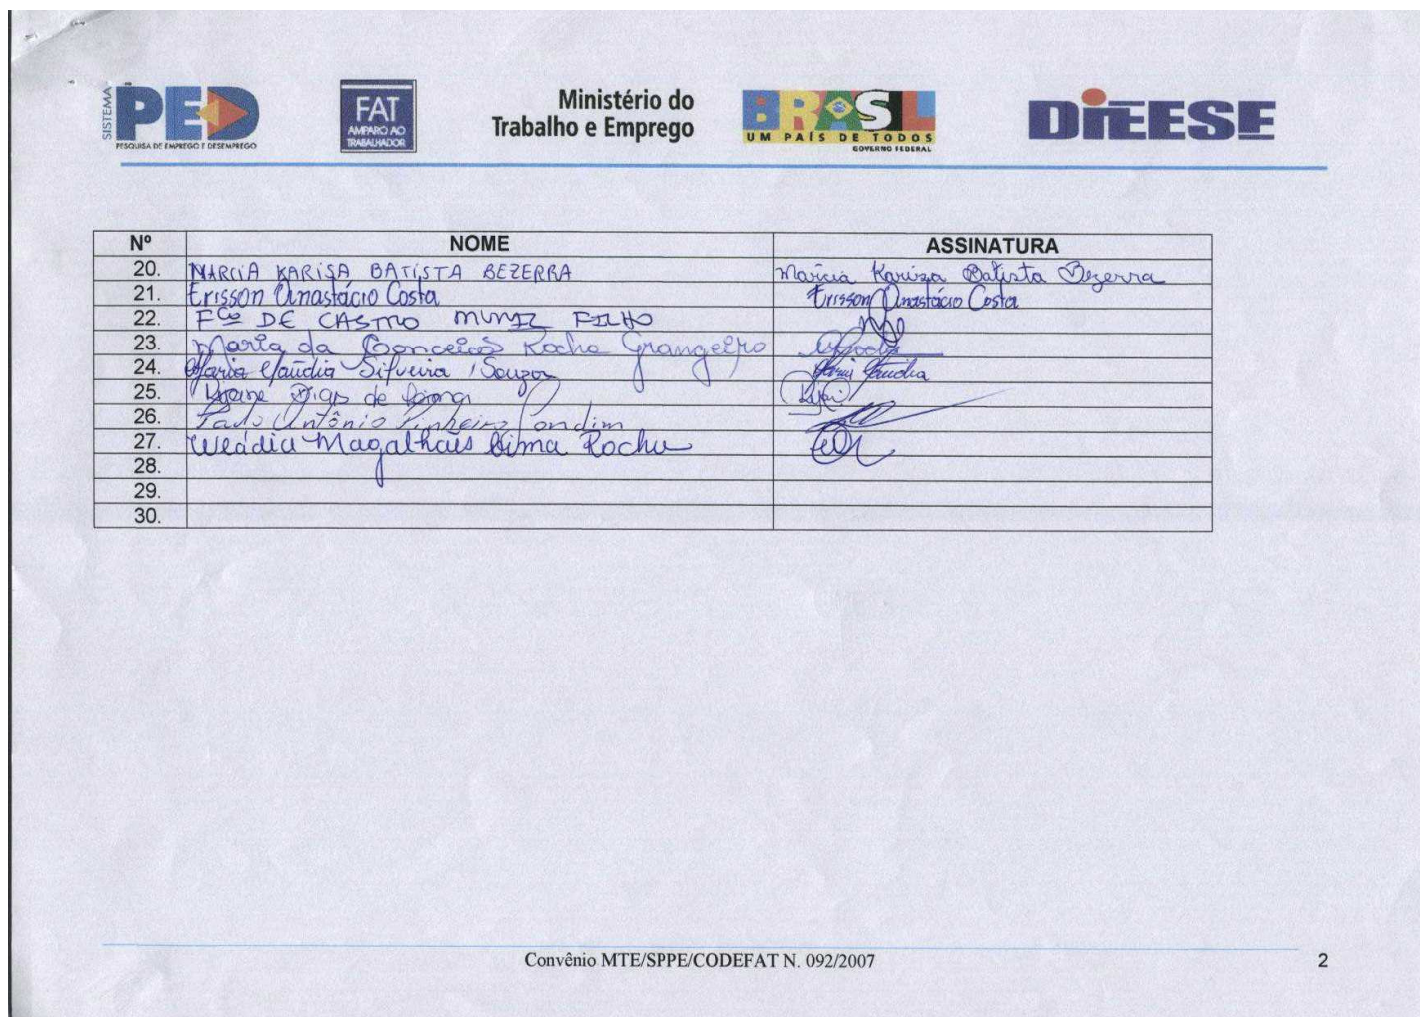 SISTEMA
PED
PESQUISA DE EMPREGO E DESEMPREGO
FAT
AMPARO AO
TRABALHADOR
Ministério do
Trabalho e Emprego
BRASIL
UM PAÍS DE TODOS
GOVERNO FEDERAL
DIEESE
Nº NOME ASSINATURA
20. MARCIA KARISA BATISTA BEZERRA Marcia Kariza Batista Bezerra
21. Erisson Anastácio Costa Erisson Anastácio Costa
22. Fco DE CASTRO MUNIZ FILHO
23. Maria da Conceicão Rocha Grangeiro
24. Maria Claúdia Silveira Souza Maria Claudia
25. Dias de Lima
26. Antônio Pinheiro
27. Magalhães Lima Rocha
28.
29.
30.
Convênio MTE/SPPE/CODEFAT N. 092/2007
2